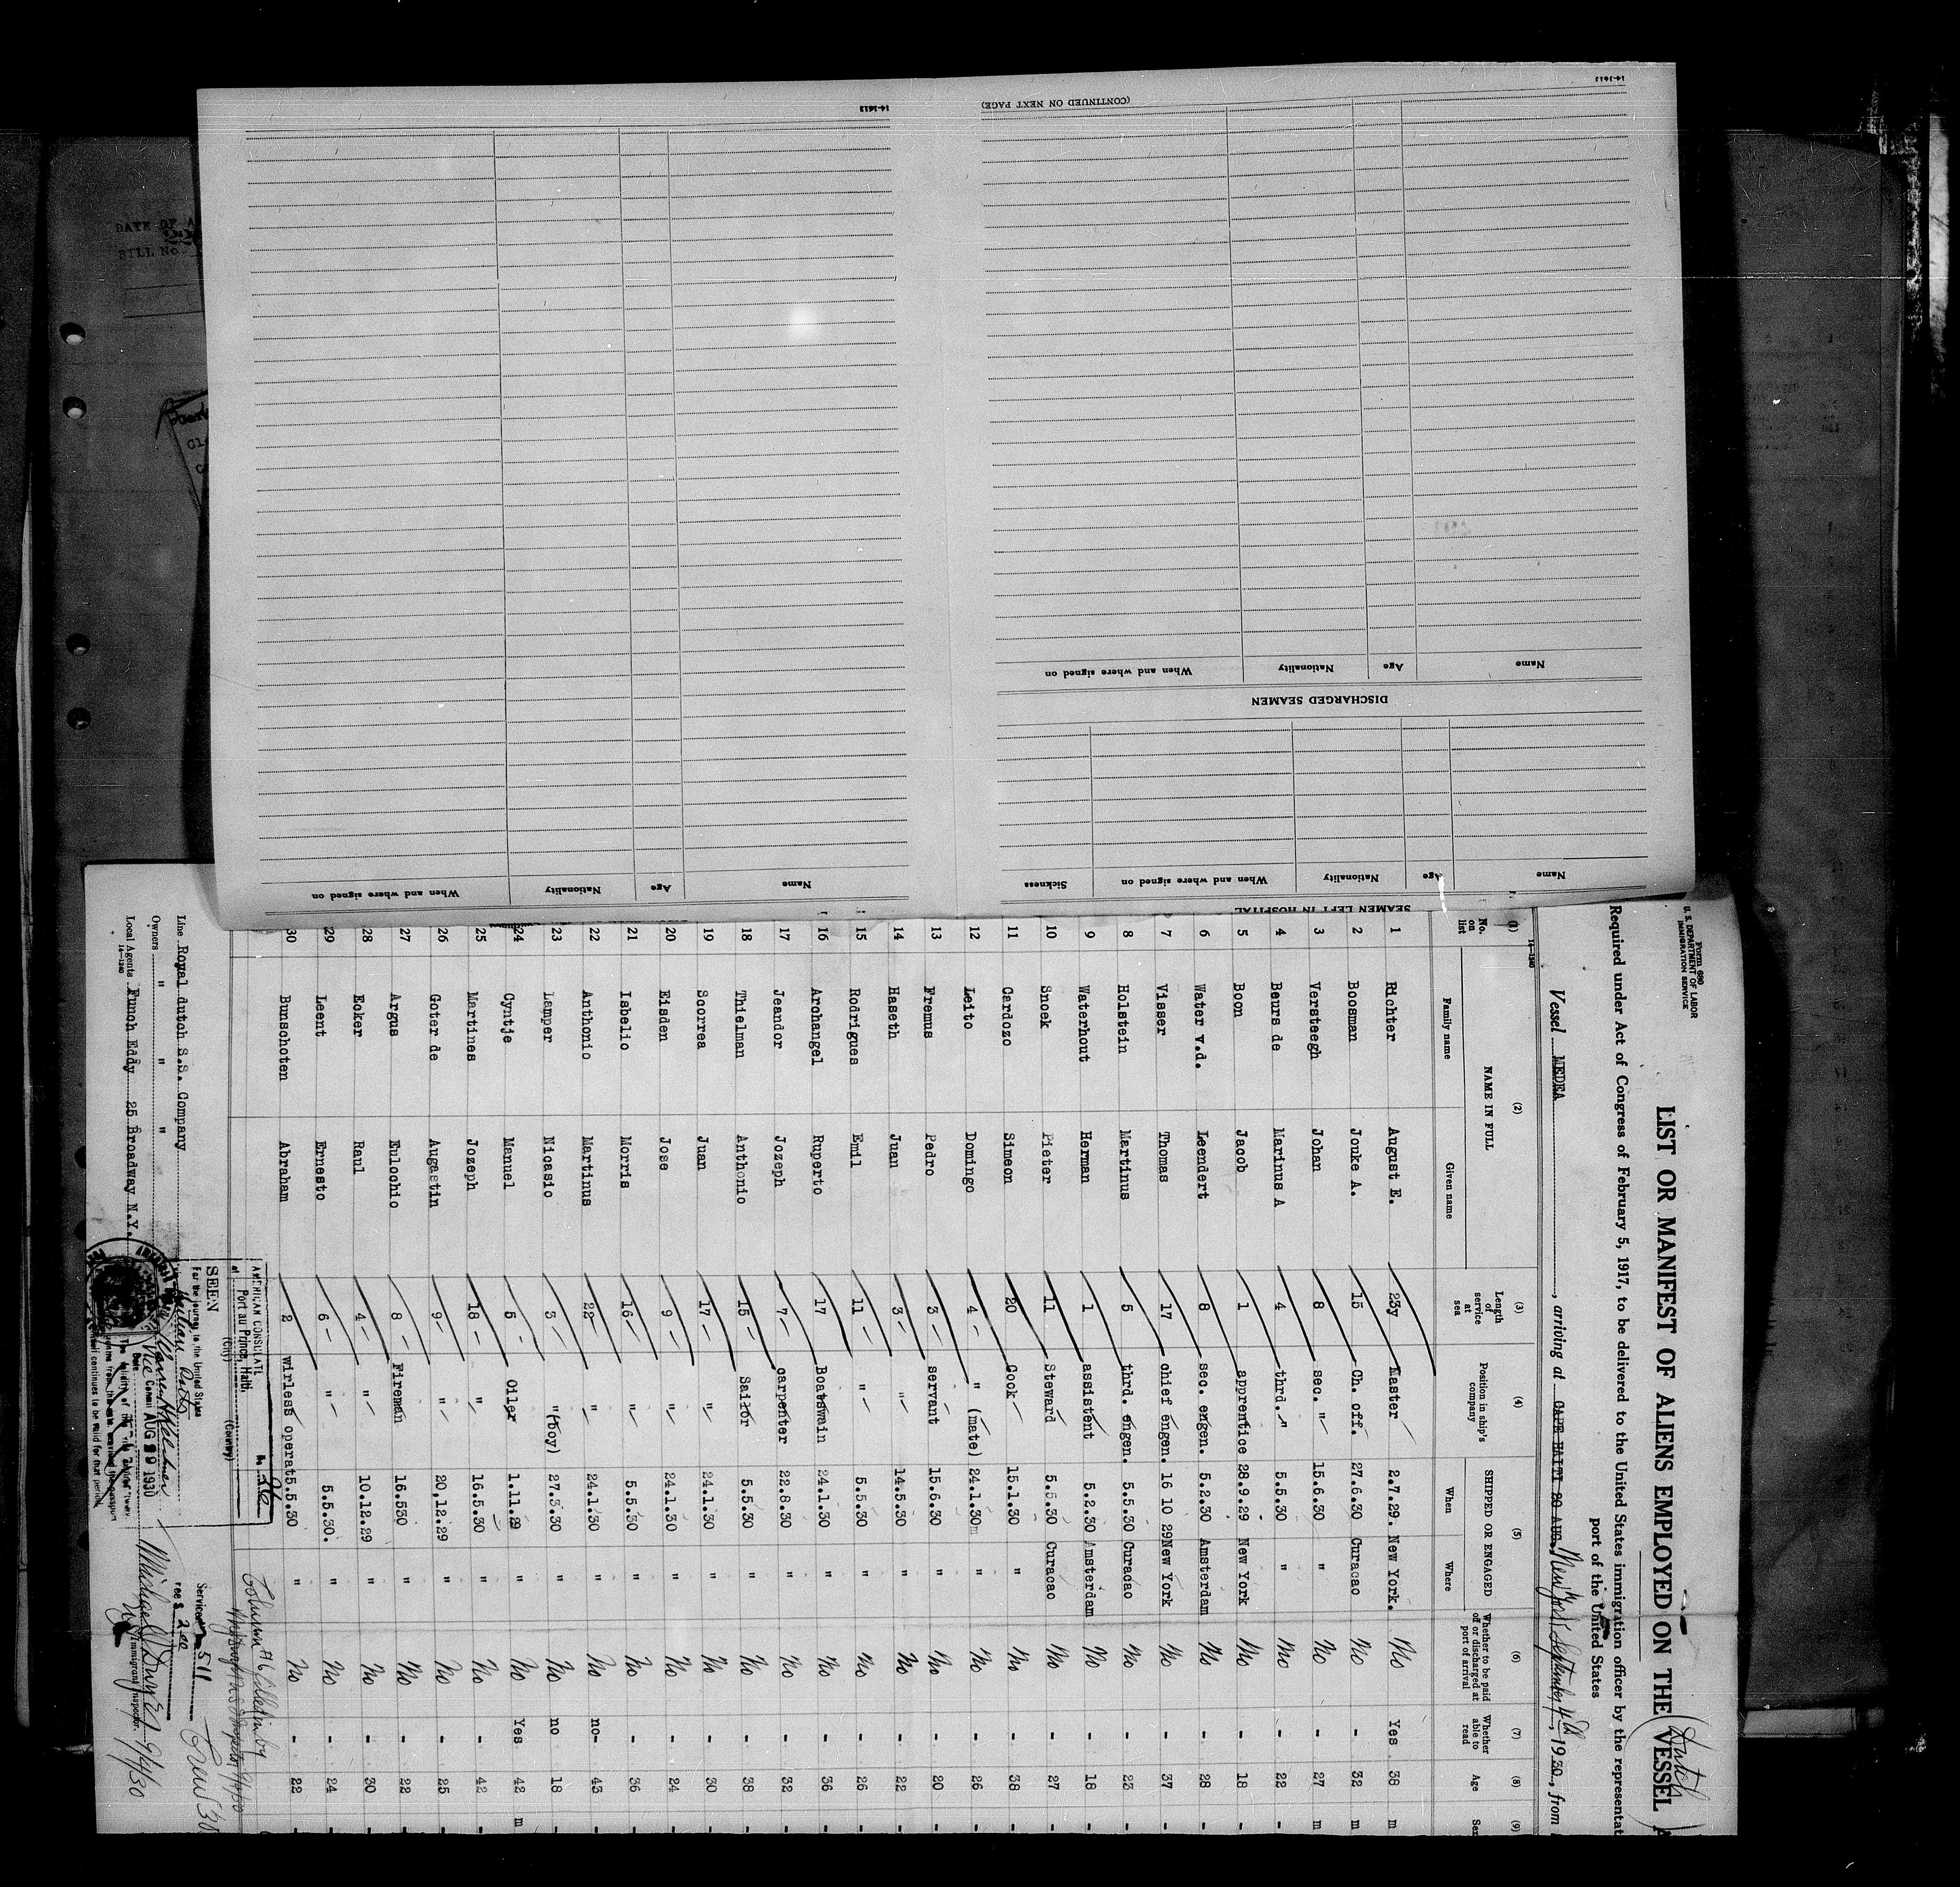 Form 680
U. S. DEPARTMENT OF LABOR
IMMIGRATION SERVICE
LIST OR MANIFEST OF ALIENS EMPLOYED ON THE VESSEL
(Dutch)
Required under Act of Congress of February 5, 1917, to be delivered to the United States immigration officer by the representat
port of the United States
Vessel MEDEA, arriving at CAPE HAITI 20 AUG. New York September 4th, 1930, from
14-1240
(1) (2) (3) (4) (5) (6) (7) (8) (9)
No. on list NAME IN FULL Family name Given name Length of service at sea Position in ship's company SHIPPED OR ENGAGED When Where Whether to be paid off or discharged at port of arrival Whether able to read Age Sex
1 Richter August E. 23y Master 2.7.29. New York. No Yes 38 m
2 Boosman Jouke A. 15 Ch. off. 27.6.30 Curacao No - 32 m
3 Versteegh Johan 8 sec. " 15.6.30 " No - 27 m
4 Beurs de Marinus A 4 thrd. " 5.5.30 " No - 22 -
5 Boon Jacob 1 apprentice 28.9.29 New York No - 18 -
6 Water v.d. Leendert 8 sec. engen. 5.2.30 Amsterdam No - 28 -
7 Visser Thomas 17 chief engen. 16 10 29 New York No - 37 -
8 Holstein Martinus 5 thrd. engen. 5.5.30 Curacao No - 23 -
9 Waterhout Herman 1 assistent 5.2.30 Amsterdam No - 18 -
10 Snoek Pieter 11 Steward 5.5.30 Curacao No - 27 -
11 Cardozo Simeon 20 Cook 15.1.30 " No - 38 -
12 Leito Domingo 4 " (mate) 24.1.30 " No - 26 -
13 Fremus Pedro 3 servant 15.6.30 " No - 20 -
14 Haseth Juan 3 " 14.5.30 " No - 22 -
15 Rodrigues Emil 11 " 5.5.30 " No - 26 -
16 Archangel Ruperto 17 Boatswain 24.1.30 " No - 36 -
17 Jeandor Jozeph 7 carpenter 22.8.30 " No - 32 -
18 Thielman Anthonio 15 Sailor 5.5.30 " No - 38 -
19 Scorrea Juan 17 " 24.1.30 " No - 30 -
20 Eisden Jose 9 " 24.1.30 " No - 24 -
21 Isbelio Morris 16 " 5.5.30 " No - 36 -
22 Anthonio Martinus 22 " 24.1.30 " No no- 43 -
23 Lamper Nicasio 3 " (boy) 27.3.30 " No no 18 -
24 Cyntje Manuel 5 Oiler 1.11.29 " No Yes 42 m
25 Martines Jozeph 18 " 16.5.30 " No - 42 -
26 Goter de Augastin 9 " 20,12.29 " No - 25 -
27 Argus Eulochio 8 Fireman 16.530 " No - 22 -
28 Ecker Raul 4 " 10.12.29 " No - 30 -
29 Leent Ernesto 6 " 5.5.30. " No - 24 -
30 Bunschoten Abraham 2 wirless operat 5.5.30 " No - 22 -
Line Royal dutch S.S. Company
Owners " " "
Local Agents Funch Eddy 25 Broadway N.Y.
14-1240
AMERICAN CONSULATE
at Port au Prince, Haiti.
(City) (Country)
No. 26
SEEN
For the journey to the United States
Date AUG 29 1930
Vice Consul
Service No 511
Fee $ 2.00
Column #6 filled in by
Crew 30
9/4/30
Immigrant Inspector.
SEAMEN LEFT IN HOSPITAL
Name Age Nationality When and where signed on Sickness
DISCHARGED SEAMEN
Name Age Nationality When and where signed on
(CONTINUED ON NEXT PAGE)
14-1613
Name Age Nationality When and where signed on
14-1613
DATE OF
BILL No